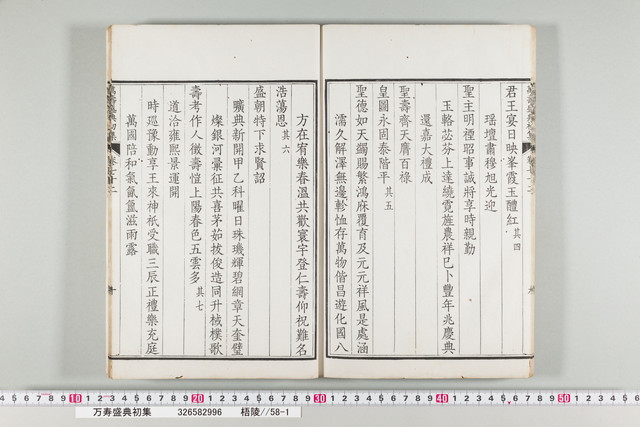 君王宴日映峯霞玉醴紅 其四
瑤壇肅穆旭光迎
聖主明禋昭事誠將享時親勤
玉輅苾芬上達繞霓旌農祥巳卜豐年兆慶典
還嘉大禮成
聖壽齊天膺百祿
皇圖永固泰階平 其五
聖德如天錫賜繁鴻庥覆育及元元祥風是處涵
濡久解澤無邊軫恤存萬物偕昌遊化國八
方在宥樂春溫共歡寰宇登仁壽仰祝難名
浩蕩恩 其六
盛朝特下求賢詔
曠典新開甲乙科曜日珠璣輝碧網章天奎璧
燦銀河彙征共喜茅茹拔俊造同升棫樸歌
壽考作人徵壽愷上陽春色五雲多 其七
道洽雍熙景運開
時巡豫動享王來神祇受職三辰正禮樂充庭
萬國陪和氣氤氳滋雨露
萬壽盛典初集
卷七十二
万寿盛典初集 326582996 梧陵//58-1
10 20 30 40 50